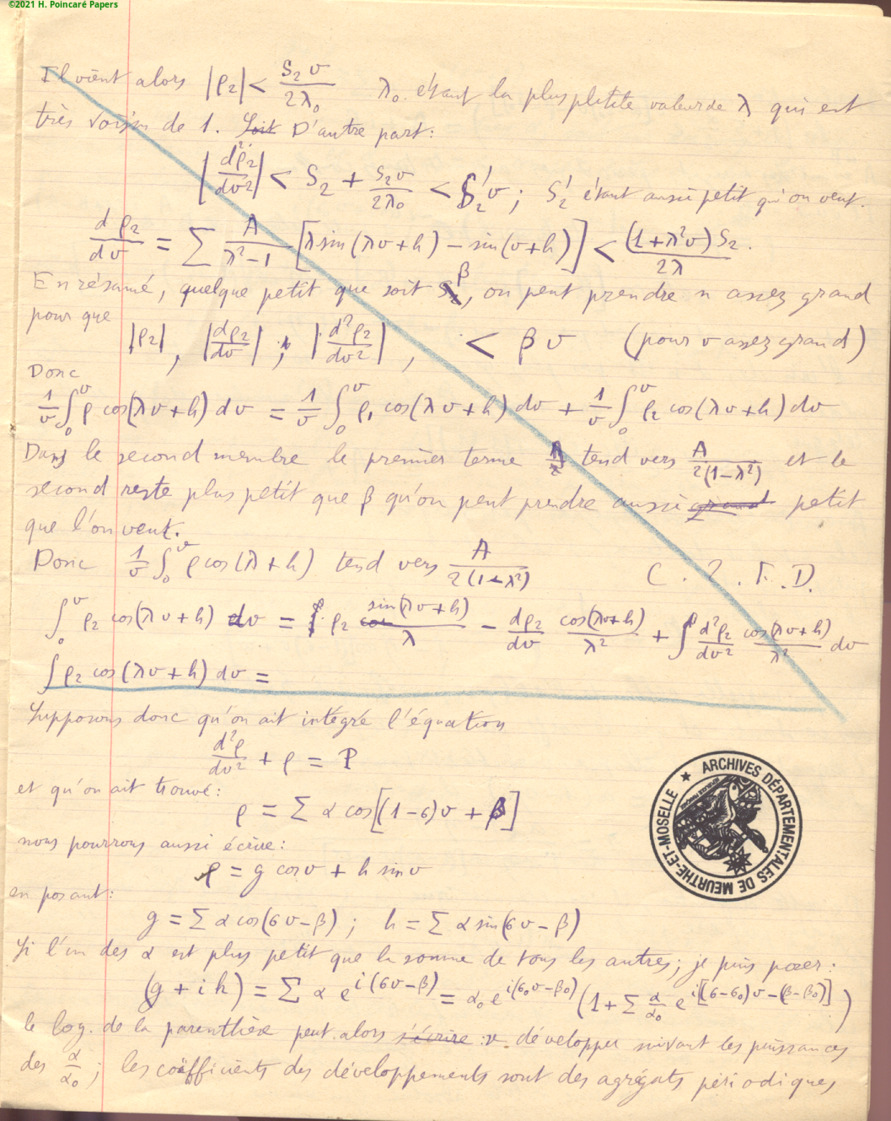 ©2021 H. Poincaré Papers
Il vient alors |ρ₂| < S₂v/2λ₀ λ₀ étant la plus petite valeur de λ qui est
très voisin de 1. Soit D'autre part:
|d²ρ₂/dv²| < S₂ + S₂v/2λ₀ < S'₂v ; S'₂ étant aussi petit qu'on veut.
dρ₂/dv = ∑ A/(λ²-1) [λ sin(λv+h) - sin(v+h)] < (1+λ²v)S₂/2λ.
En résumé, quelque petit que soit β, on peut prendre n assez grand
pour que
|ρ₂|, |dρ₂/dv|, |d²ρ₂/dv²|, < βv (pour v assez grand)
Donc
1/v ∫₀ᵛ ρ cos(λv+h) dv = 1/v ∫₀ᵛ ρ₁ cos(λv+h) dv + 1/v ∫₀ᵛ ρ₂ cos(λv+h) dv
Dans le second membre le premier terme tend vers A/2(1-λ²) et le
second reste plus petit que β qu'on peut prendre aussi grand petit
que l'on veut.
Donc 1/v ∫₀ᵛ ρ cos(λ+h) tend vers A/2(1-λ²) C.Q.F.D.
∫₀ᵛ ρ₂ cos(λv+h) dv = ρ₂ sin(λv+h)/λ - dρ₂/dv cos(λv+h)/λ² + ∫ d²ρ₂/dv² cos(λv+h)/λ² dv
∫ρ₂ cos(λv+h) dv =
Supposons donc qu'on ait intégré l'équation
d²ρ/dv² + ρ = P
et qu'on ait trouvé:
ρ = ∑ α cos[(1-σ)v + β]
nous pourrons aussi écrire:
ρ = g cos v + h sin v
en posant:
g = ∑ α cos(σv-β) ; h = ∑ α sin(σv-β)
Si l'un des α est plus petit que la somme de tous les autres; je puis poser:
(g+ih) = ∑ α e^{i(σv-β)} = α₀ e^{i(σ₀v-β₀)} (1+∑ α/α₀ e^{i[(σ-σ₀)v-(β-β₀)]})
le log. de la parenthèse peut alors s'écrire : se développer suivant les puissances
des α/α₀ ; les coëfficients des développements sont des agrégats périodiques
★ ARCHIVES DÉPARTEMENTALES DE MEURTHE-ET-MOSELLE